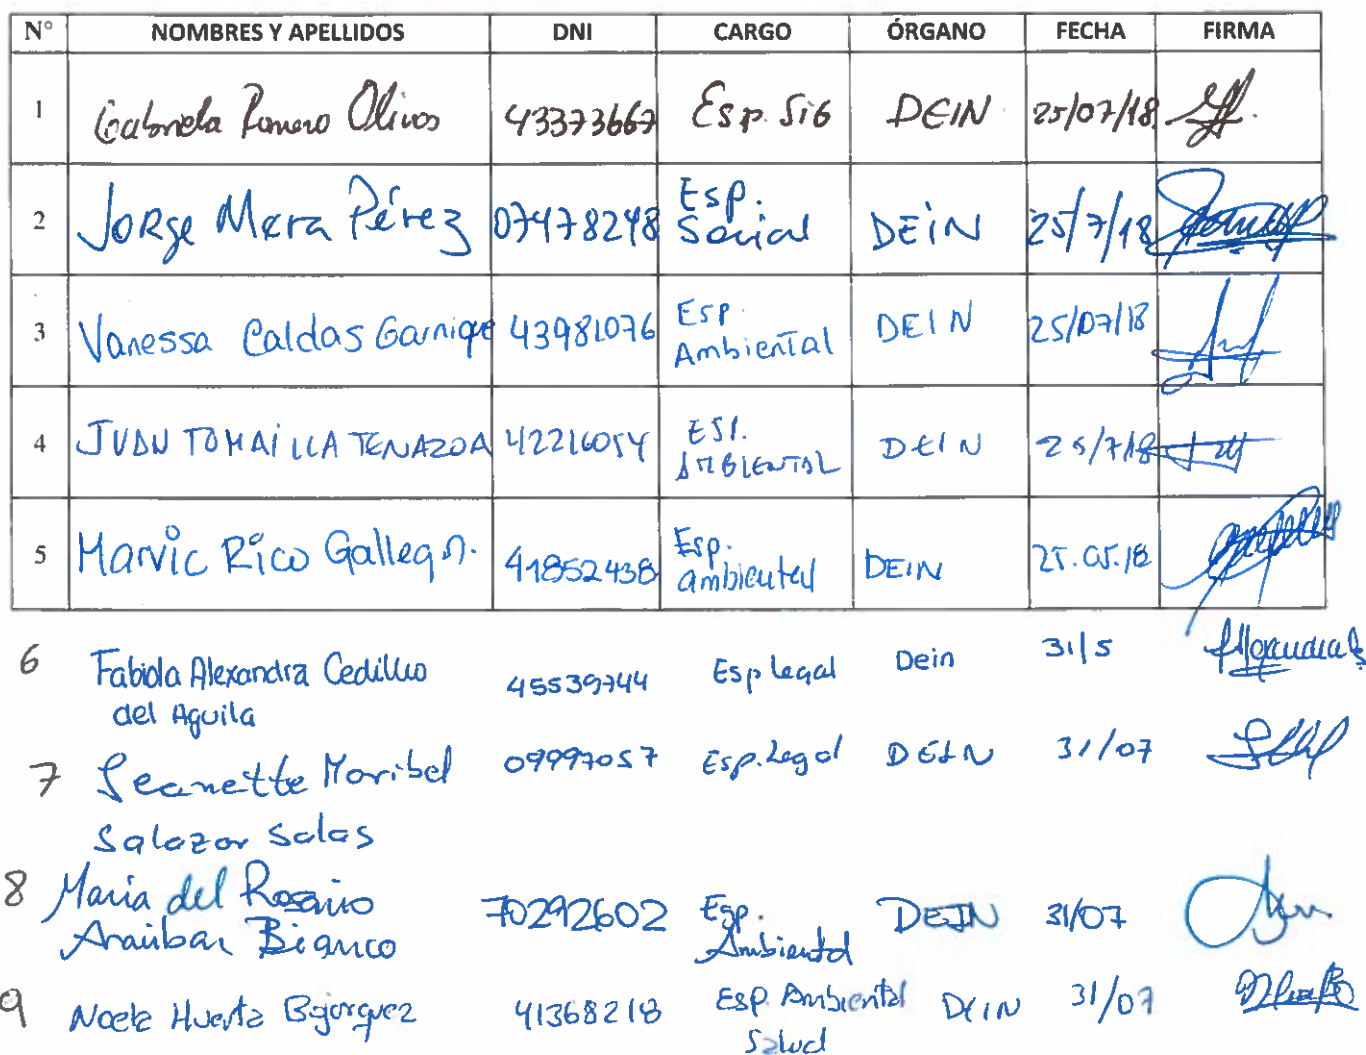 N° NOMBRES Y APELLIDOS DNI CARGO ÓRGANO FECHA FIRMA
1 Gabriela Romero Olivos 43373667 Esp. SIG DEIN 25/07/18
2 Jorge Mera Pérez 07478248 Esp. Social DEIN 25/7/18
3 Vanessa Caldas Garnique 43981076 Esp. Ambiental DEIN 25/07/18
4 JUAN TOMAILLA TENAZOA 42216054 ESP. AMBIENTAL DEIN 25/7/18
5 Marvic Rico Gallegos. 41852438 Esp. ambiental DEIN 25.05.18
6 Fabiola Alexandra Cedillo 45539744 Esp legal Dein 31/5
del Aguila
7 Jeanette Maribel 09997057 Esp. Legal DEIN 31/07
Salazar Salas
8 Maria del Rosario 70292602 Esp. DEIN 31/07
Araníbar Bianco Ambiental
9 Noela Huerta Bojorquez 41368218 Esp. Ambiental DEIN 31/07
Salud